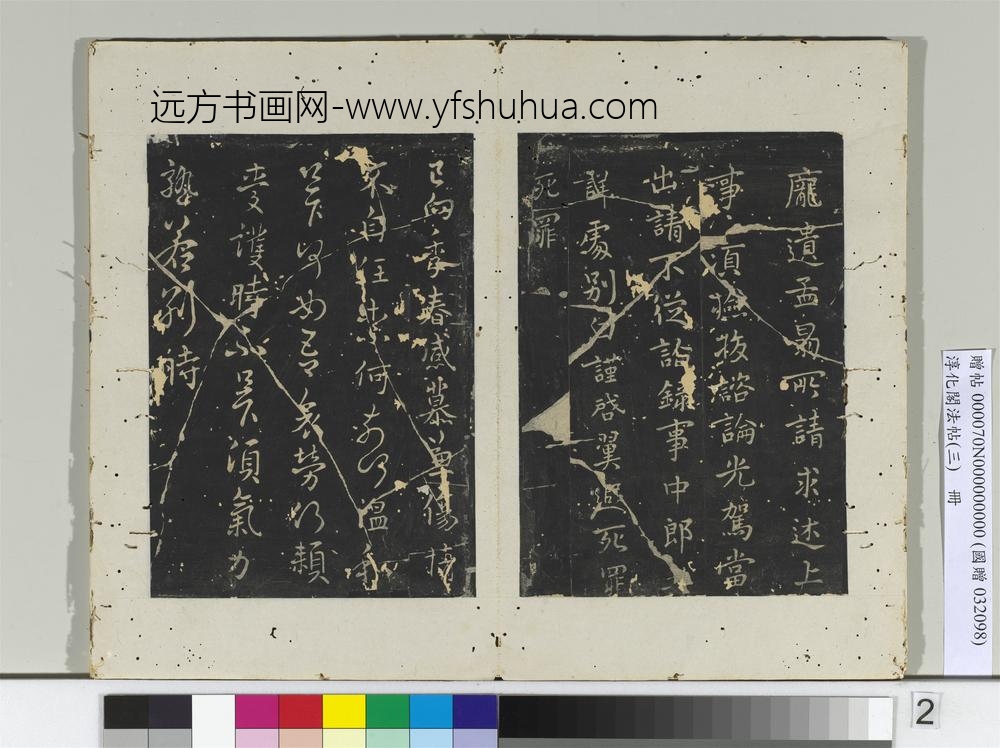 远方书画网-www.yfshuhua.com
龐遺孟昜所請求述上
事 須檢校諮論光駕當
出請不從詣錄事中郎共
詳處別白謹啓翼遜死罪
死罪
已向季春感慕兼傷情
不自任柰何柰何溫和
足下何如吾哀勞何賴
愛護時不足須氣力
孰若別時
贈帖 000070N000000000 (國贈 032098)
淳化閣法帖(三) 冊
2